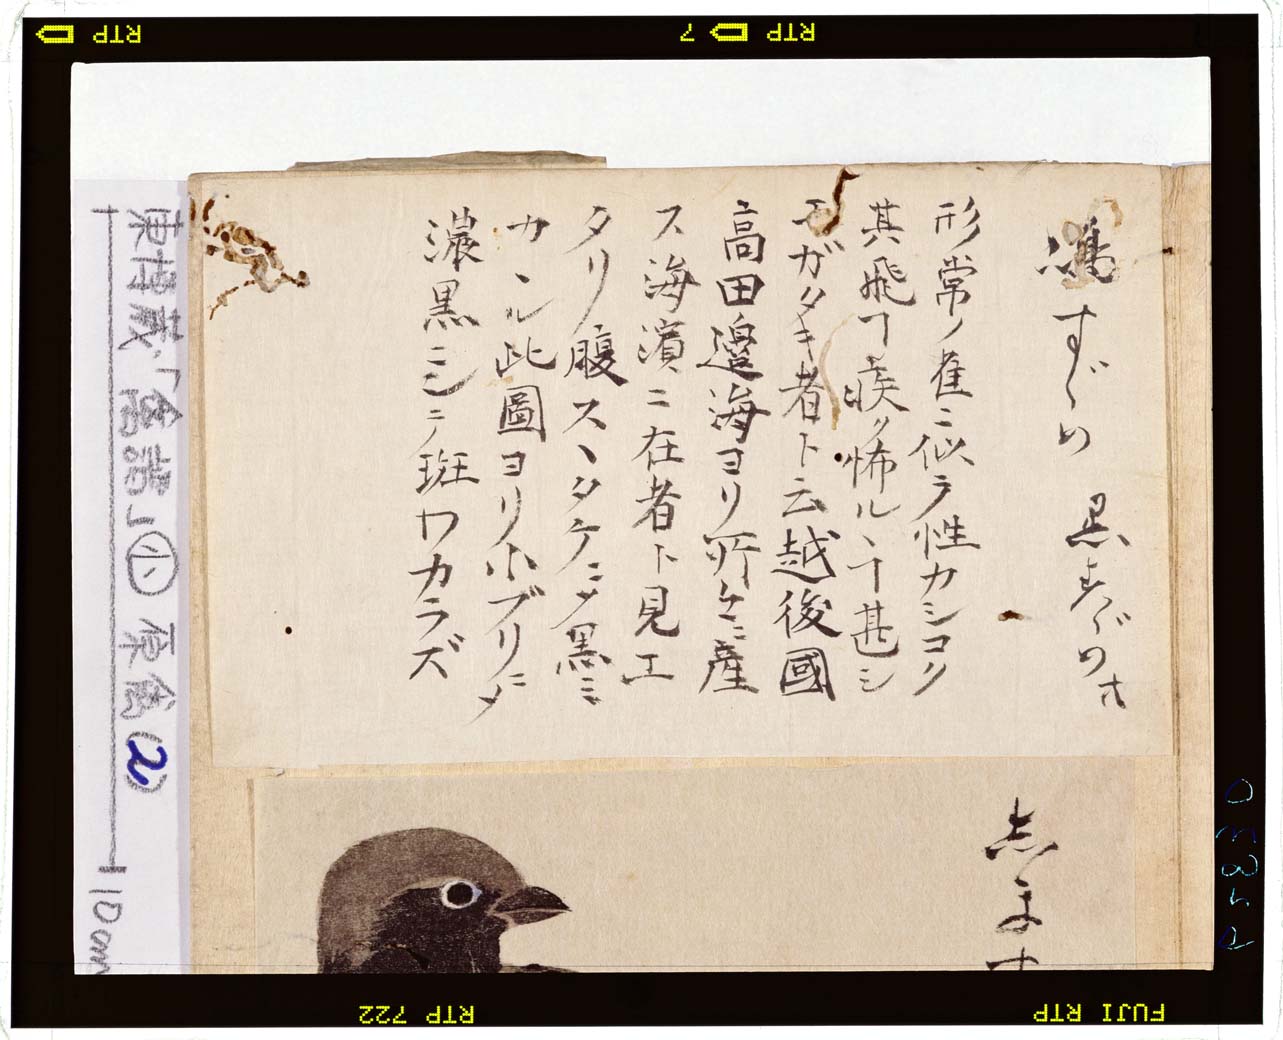 すゞめ 黒すゞめ
形常ノ雀ニ似テ性カシコク
其飛フ疾ク怖ルヽ丁甚シ
ガタキ者ト云越後國
高田邊海ヨリ所々ニ産
ス海濱ニ在者ト見エ
タリ腹スヽタケニメ黒ミ
カヽル此圖ヨリ小ブリニメ
濃黒ニシテ斑ワカラズ
志ます
東博蔵「禽譜」小 原禽(2)
10cm
RTP
7
RTP
RTP 722
FUJI RTP